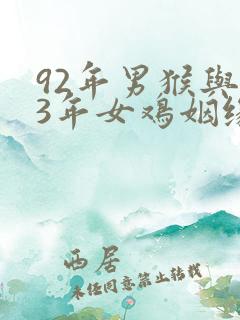 92年男猴與
3年女鸡姻缘
西居
未经同意禁止转载